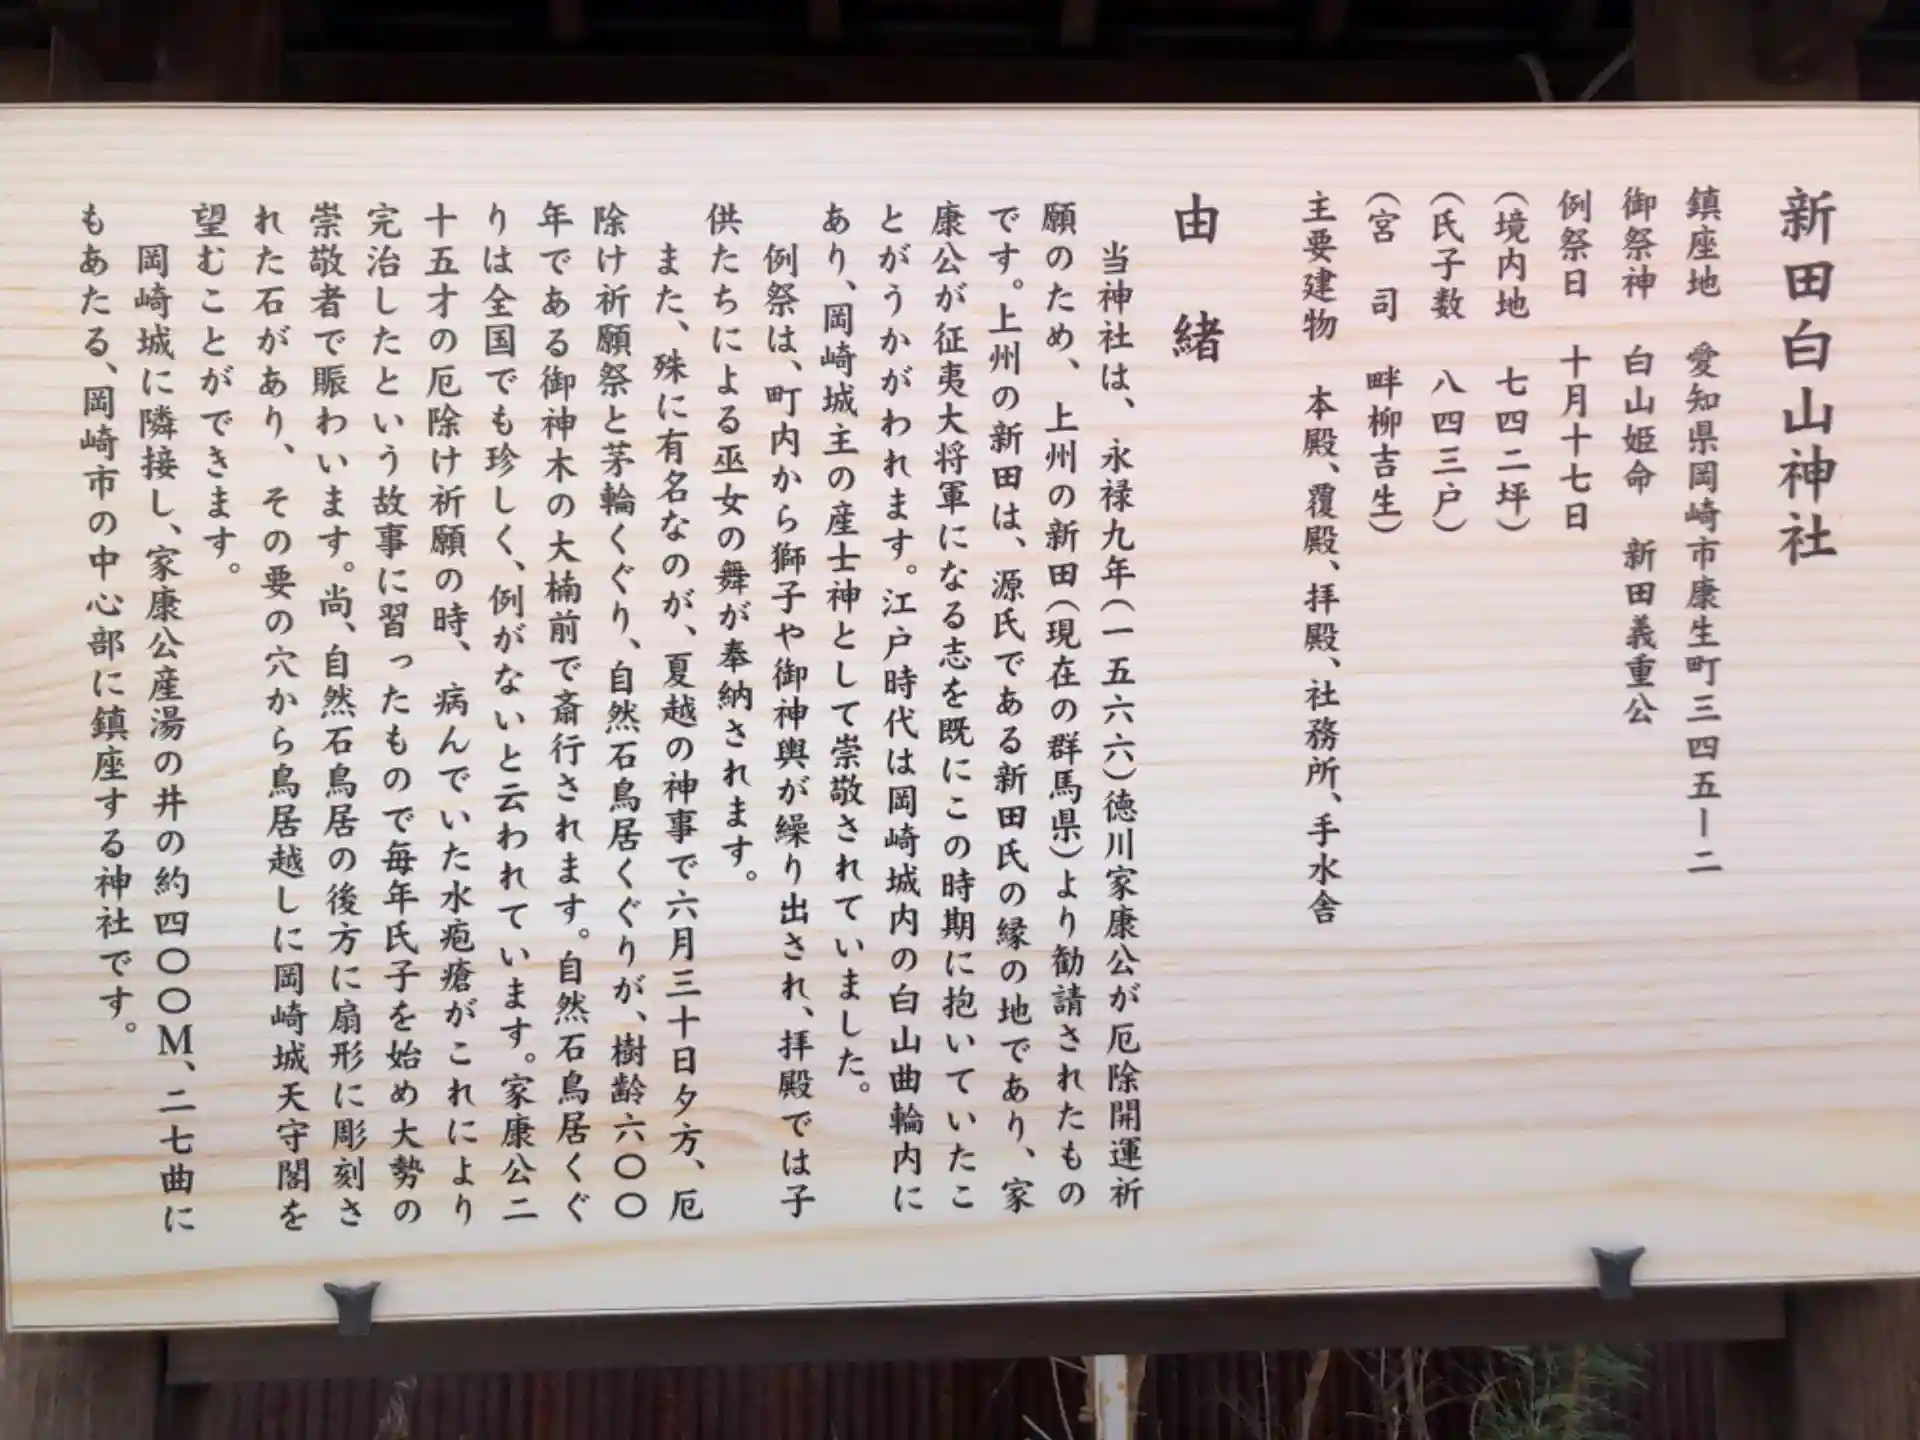 新田白山神社
鎮座地　愛知県岡崎市康生町三四五ー二
御祭神　白山姫命　新田義重公
例祭日　十月十七日
（境内地　七四二坪）
（氏子数　八四三戸）
（宮　司　畔柳吉生）
主要建物　本殿、覆殿、拝殿、社務所、手水舎
由　緒
当神社は、永禄九年（一五六六）徳川家康公が厄除開運祈
願のため、上州の新田（現在の群馬県）より勧請されたもの
です。上州の新田は、源氏である新田氏の縁の地であり、家
康公が征夷大将軍になる志を既にこの時期に抱いていたこ
とがうかがわれます。江戸時代は岡崎城内の白山曲輪内に
あり、岡崎城主の産士神として崇敬されていました。
例祭は、町内から獅子や御神輿が繰り出され、拝殿では子
供たちによる巫女の舞が奉納されます。
また、殊に有名なのが、夏越の神事で六月三十日夕方、厄
除け祈願祭と茅輪くぐり、自然石鳥居くぐりが、樹齢六〇〇
年である御神木の大楠前で斎行されます。自然石鳥居くぐ
りは全国でも珍しく、例がないと云われています。家康公二
十五才の厄除け祈願の時、病んでいた水疱瘡がこれにより
完治したという故事に習ったもので毎年氏子を始め大勢の
崇敬者で賑わいます。尚、自然石鳥居の後方に扇形に彫刻さ
れた石があり、その要の穴から鳥居越しに岡崎城天守閣を
望むことができます。
岡崎城に隣接し、家康公産湯の井の約四〇〇M、二七曲に
もあたる、岡崎市の中心部に鎮座する神社です。